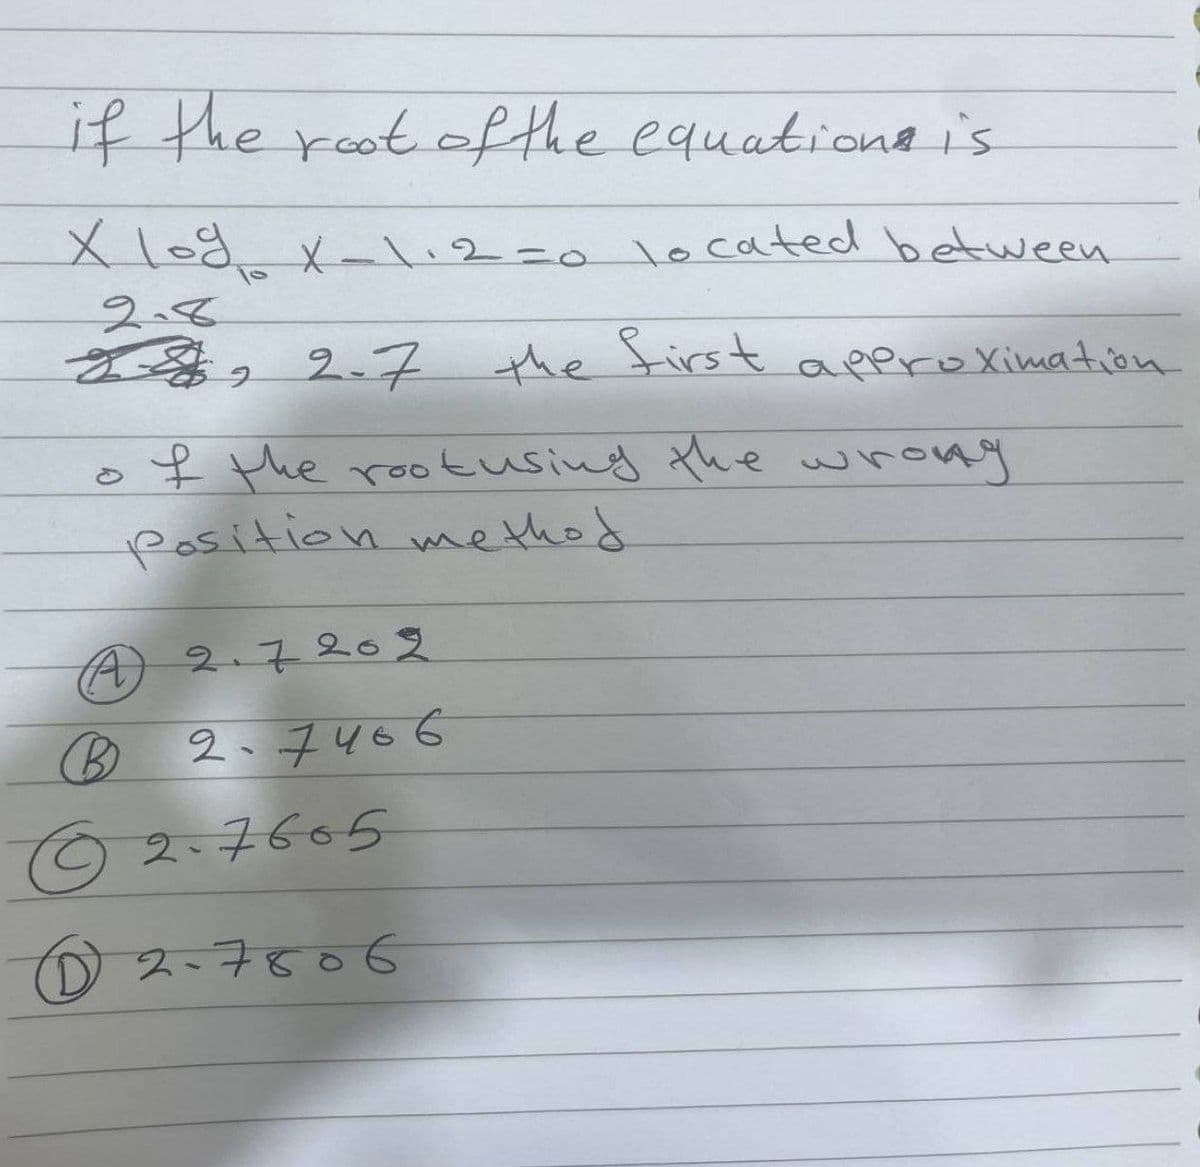 if the root of the equations is
X log₁₀ X - 1.2 = 0 located between
2.8
, 2.7 the first approximation
of the root using the wrong
position method
A 2.7202
B 2.7406
C 2.7605
D 2.7806